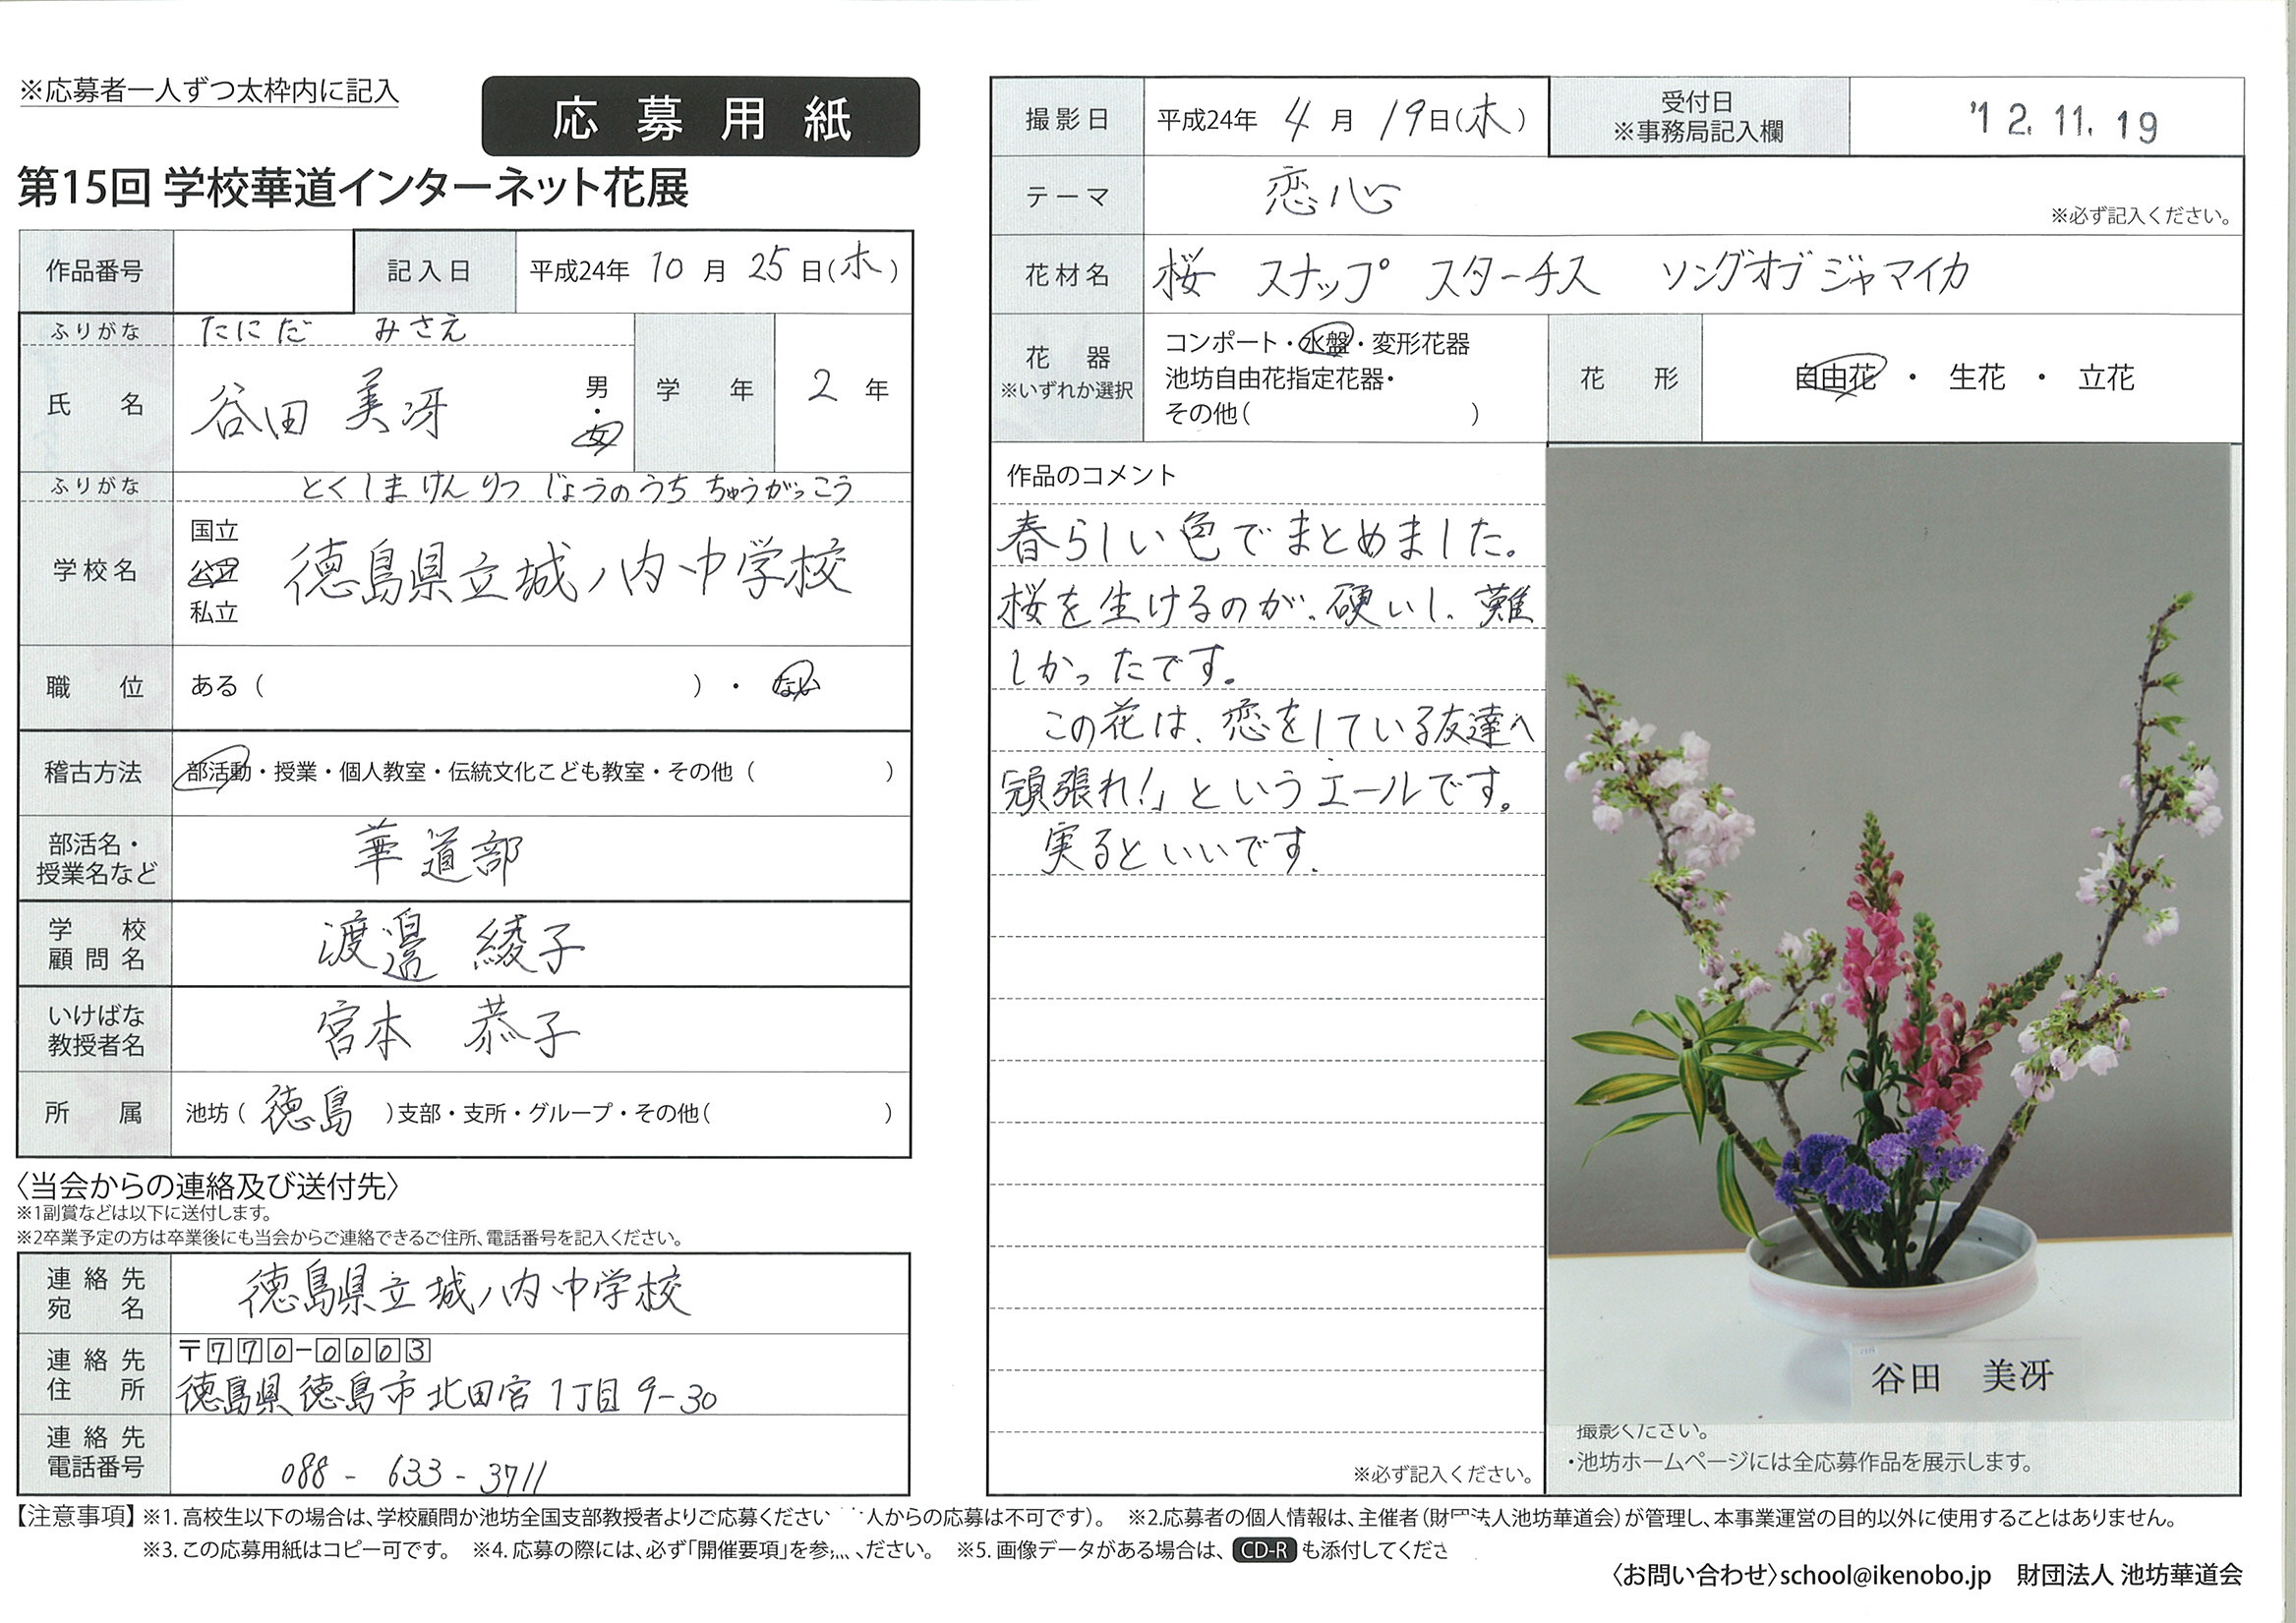 ※応募者一人ずつ太枠内に記入
応募用紙
第15回 学校華道インターネット花展
作品番号
記入日 平成24年 10月 25日(木)
ふりがな たにだ みさえ
氏名 谷田 美冴 男・女
学年 2年
ふりがな とくしまけんりつ じょうのうち ちゅうがっこう
学校名 国立 公立 私立 徳島県立城ノ内中学校
職位 ある( )・なし
稽古方法 部活動・授業・個人教室・伝統文化こども教室・その他( )
部活名・授業名など 華道部
学校顧問名 渡邉 綾子
いけばな教授者名 宮本 恭子
所属 池坊(徳島)支部・支所・グループ・その他( )
〈当会からの連絡及び送付先〉
※1副賞などは以下に送付します。
※2卒業予定の方は卒業後にも当会からご連絡できるご住所、電話番号を記入ください。
連絡先宛名 徳島県立城ノ内中学校
連絡先住所 〒770-0003
徳島県徳島市北田宮1丁目9-30
連絡先電話番号 088-633-3711
撮影日 平成24年 4月 19日(木)
受付日 ※事務局記入欄 '12.11.19
テーマ 恋心 ※必ず記入ください。
花材名 桜 スナップ スターチス ソングオブジャマイカ
花器 ※いずれか選択 コンポート・水盤・変形花器
池坊自由花指定花器・
その他( )
花形 自由花・生花・立花
作品のコメント
春らしい色でまとめました。
桜を生けるのが、硬いし、難
しかったです。
この花は、恋をしている友達へ
「頑張れ!」というエールです。
実るといいです。
※必ず記入ください。
谷田 美冴
撮影ください。
・池坊ホームページには全応募作品を展示します。
【注意事項】※1.高校生以下の場合は、学校顧問か池坊全国支部教授者よりご応募ください 人からの応募は不可です)。 ※2.応募者の個人情報は、主催者(財団法人池坊華道会)が管理し、本事業運営の目的以外に使用することはありません。
※3.この応募用紙はコピー可です。 ※4.応募の際には、必ず「開催要項」を参 ください。 ※5.画像データがある場合は、CD-Rも添付してくださ
〈お問い合わせ〉school@ikenobo.jp 財団法人 池坊華道会